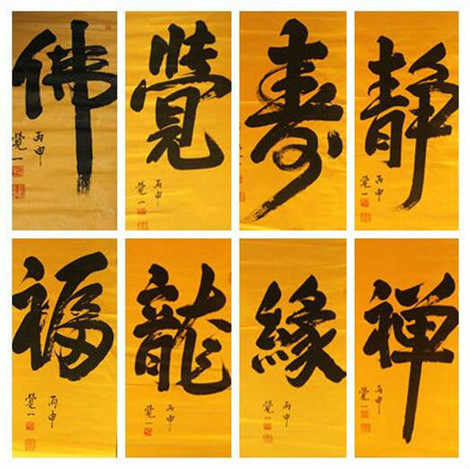 佛
丙申
覺一
覺
丙申
覺一
壽
丙申
覺一
靜
丙申
覺一
福
丙申
覺一
龍
丙申
覺一
緣
丙申
覺一
禅
丙申
覺一